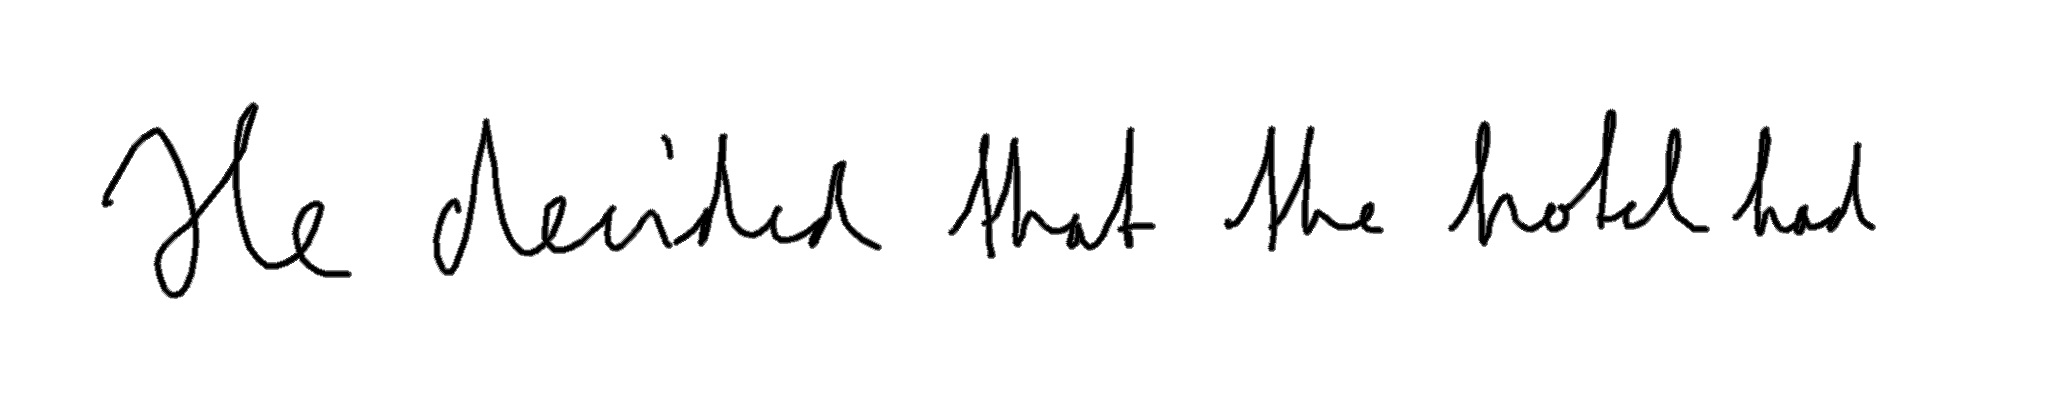 He decided that the hotel had